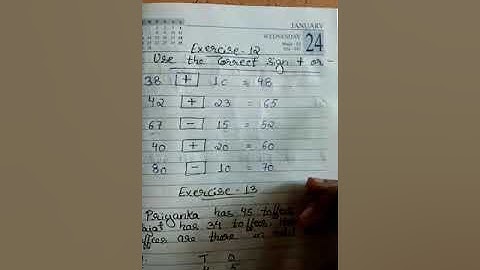 JANUARY
WEDNESDAY
24
Exercise-12
Use the correct sign + or -
38 + 10 = 48
42 + 23 = 65
67 - 15 = 52
40 + 20 = 60
80 - 10 = 70
Exercise-13
Priyanka has 45 toffees
has 34 toffees
are there in
T O